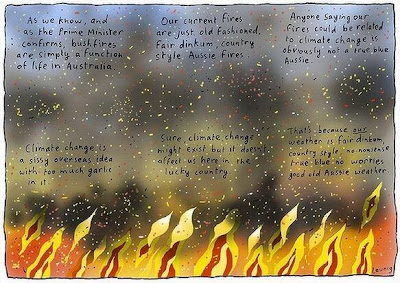 As we know, and
as the Prime Minister
confirms, bushfires
are simply a function
of life in Australia.
Our current fires
are just old fashioned,
fair dinkum, country
style Aussie fires.
Anyone saying our
fires could be related
to climate change is
obviously not a true blue
Aussie.
Climate change is
a sissy overseas idea
with too much garlic
in it.
Sure, climate change
might exist but it doesn't
affect us here in the
lucky country
That's because our
weather is fair dinkum,
country style no nonsense
true blue no worries
good old Aussie weather
Leunig